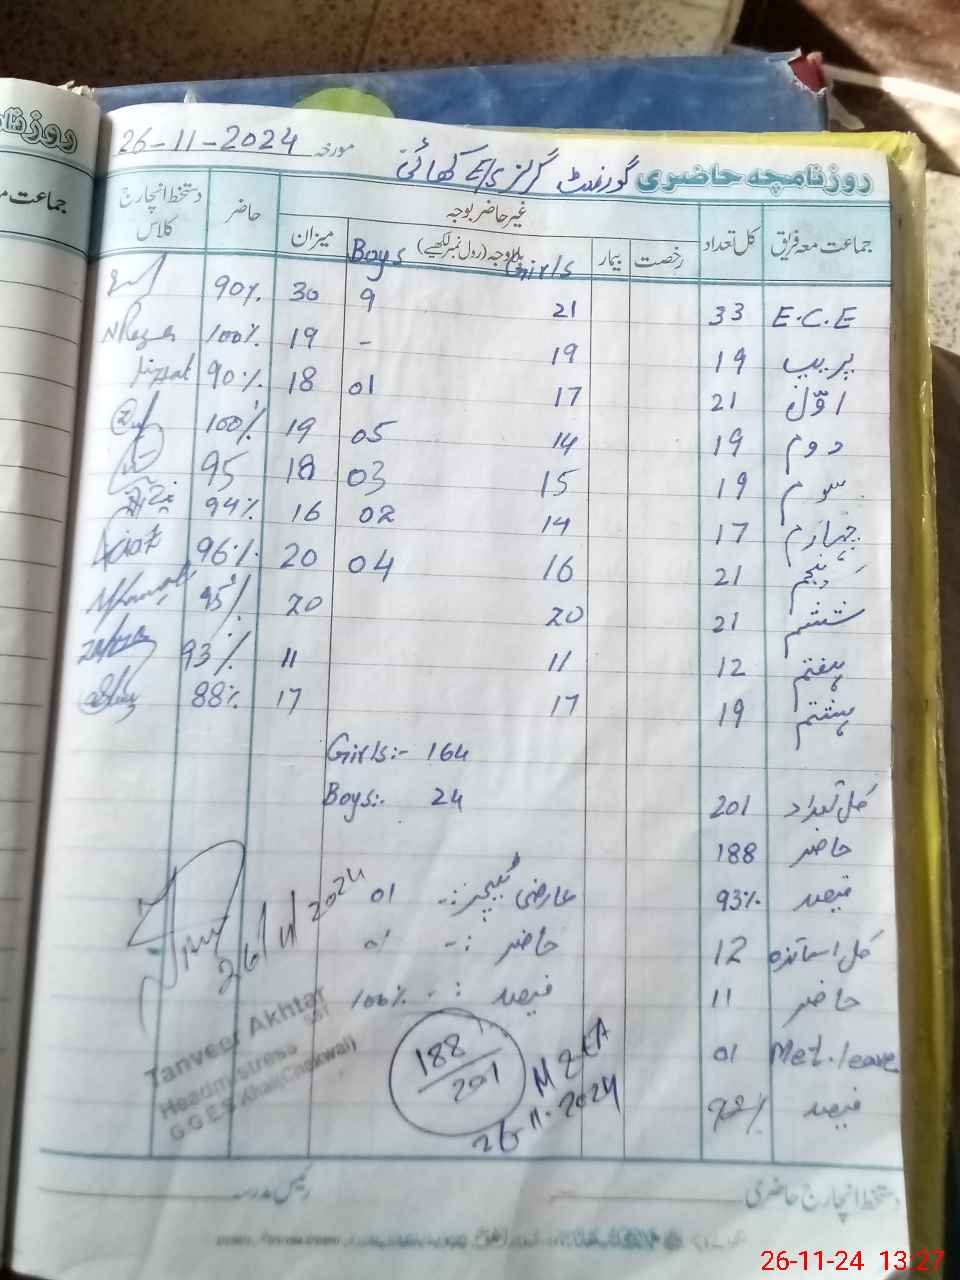 روزنامچہ حاضری گورنمنٹ گرلز E/S کھائی مورخہ 26-11-2024
جماعت معہ فریق کل تعداد غیر حاضر بوجہ حاضر دستخط انچارج کلاس
رخصت بیمار بلاوجہ (رول نمبر لکھیے) Girls Boys میزان
E.C.E 33 21 9 30 90%
پریپ 19 19 - 19 100%
اوّل 21 17 01 18 90%
دوم 19 14 05 19 100%
سوم 19 15 03 18 95
چہارم 17 14 02 16 94%
پنجم 21 16 04 20 96%
ششم 21 20 20 95%
ہفتم 12 11 11 93%
ہشتم 19 17 17 88%
Girls:- 164
کل تعداد 201 Boys:- 24
حاضر 188
فیصد 93% عارضی ٹیچر :- 01
کل اساتذہ 12 حاضر :- 01
حاضر 11 فیصد :- 100%
Met. leave 01
فیصد 92%
26/11/2024
Tanveer Akhtar
SST
Headmistress
G.G.E.S Khai (Chakwal)
188/201
MEA
26-11-2024
دستخط انچارج حاضری رئیس مدرسہ
روزنا
جماعت م
26-11-24 13:27